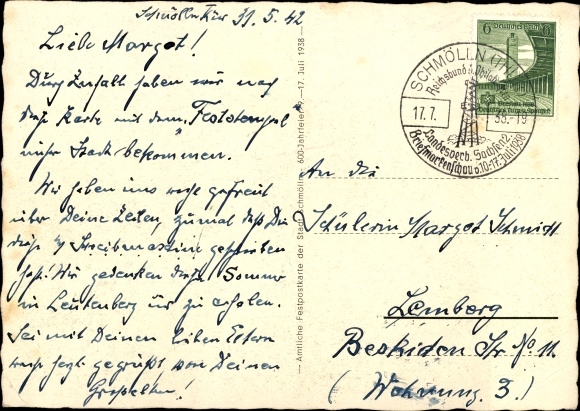 Schmölln Thür 31.5.42
Liebe Margot!
Durch Zufall haben wir noch
diese Karte mit dem "Feststempel"
unsrer Stadt bekommen.
Wir haben uns sehr gefreut
über Deine Zeilen, zumal daß Du
diese Schreibmaschine geschrieben
hast! Wir gedenken diesen Sommer
in Leutenberg uns zu erholen.
Sei mit Deinen lieben Eltern
recht herzl. gegrüßt von Deinen
Großeltern!
Amtliche Festpostkarte der Stadt Schmölln 600-Jahrfeier 9.—17. Juli 1938
6 Deutsches Reich 6
SCHMÖLLN (THÜR)
Reichsbund d. Philatelisten
17.7. 38.-19
Landesverb. Sachsen
Briefmarkenschau v. 10-17. Juli 1938
An die
Schülerin Margot Schmidt
Lemberg
Beskiden Str No 11.
(Wohnung 3.)